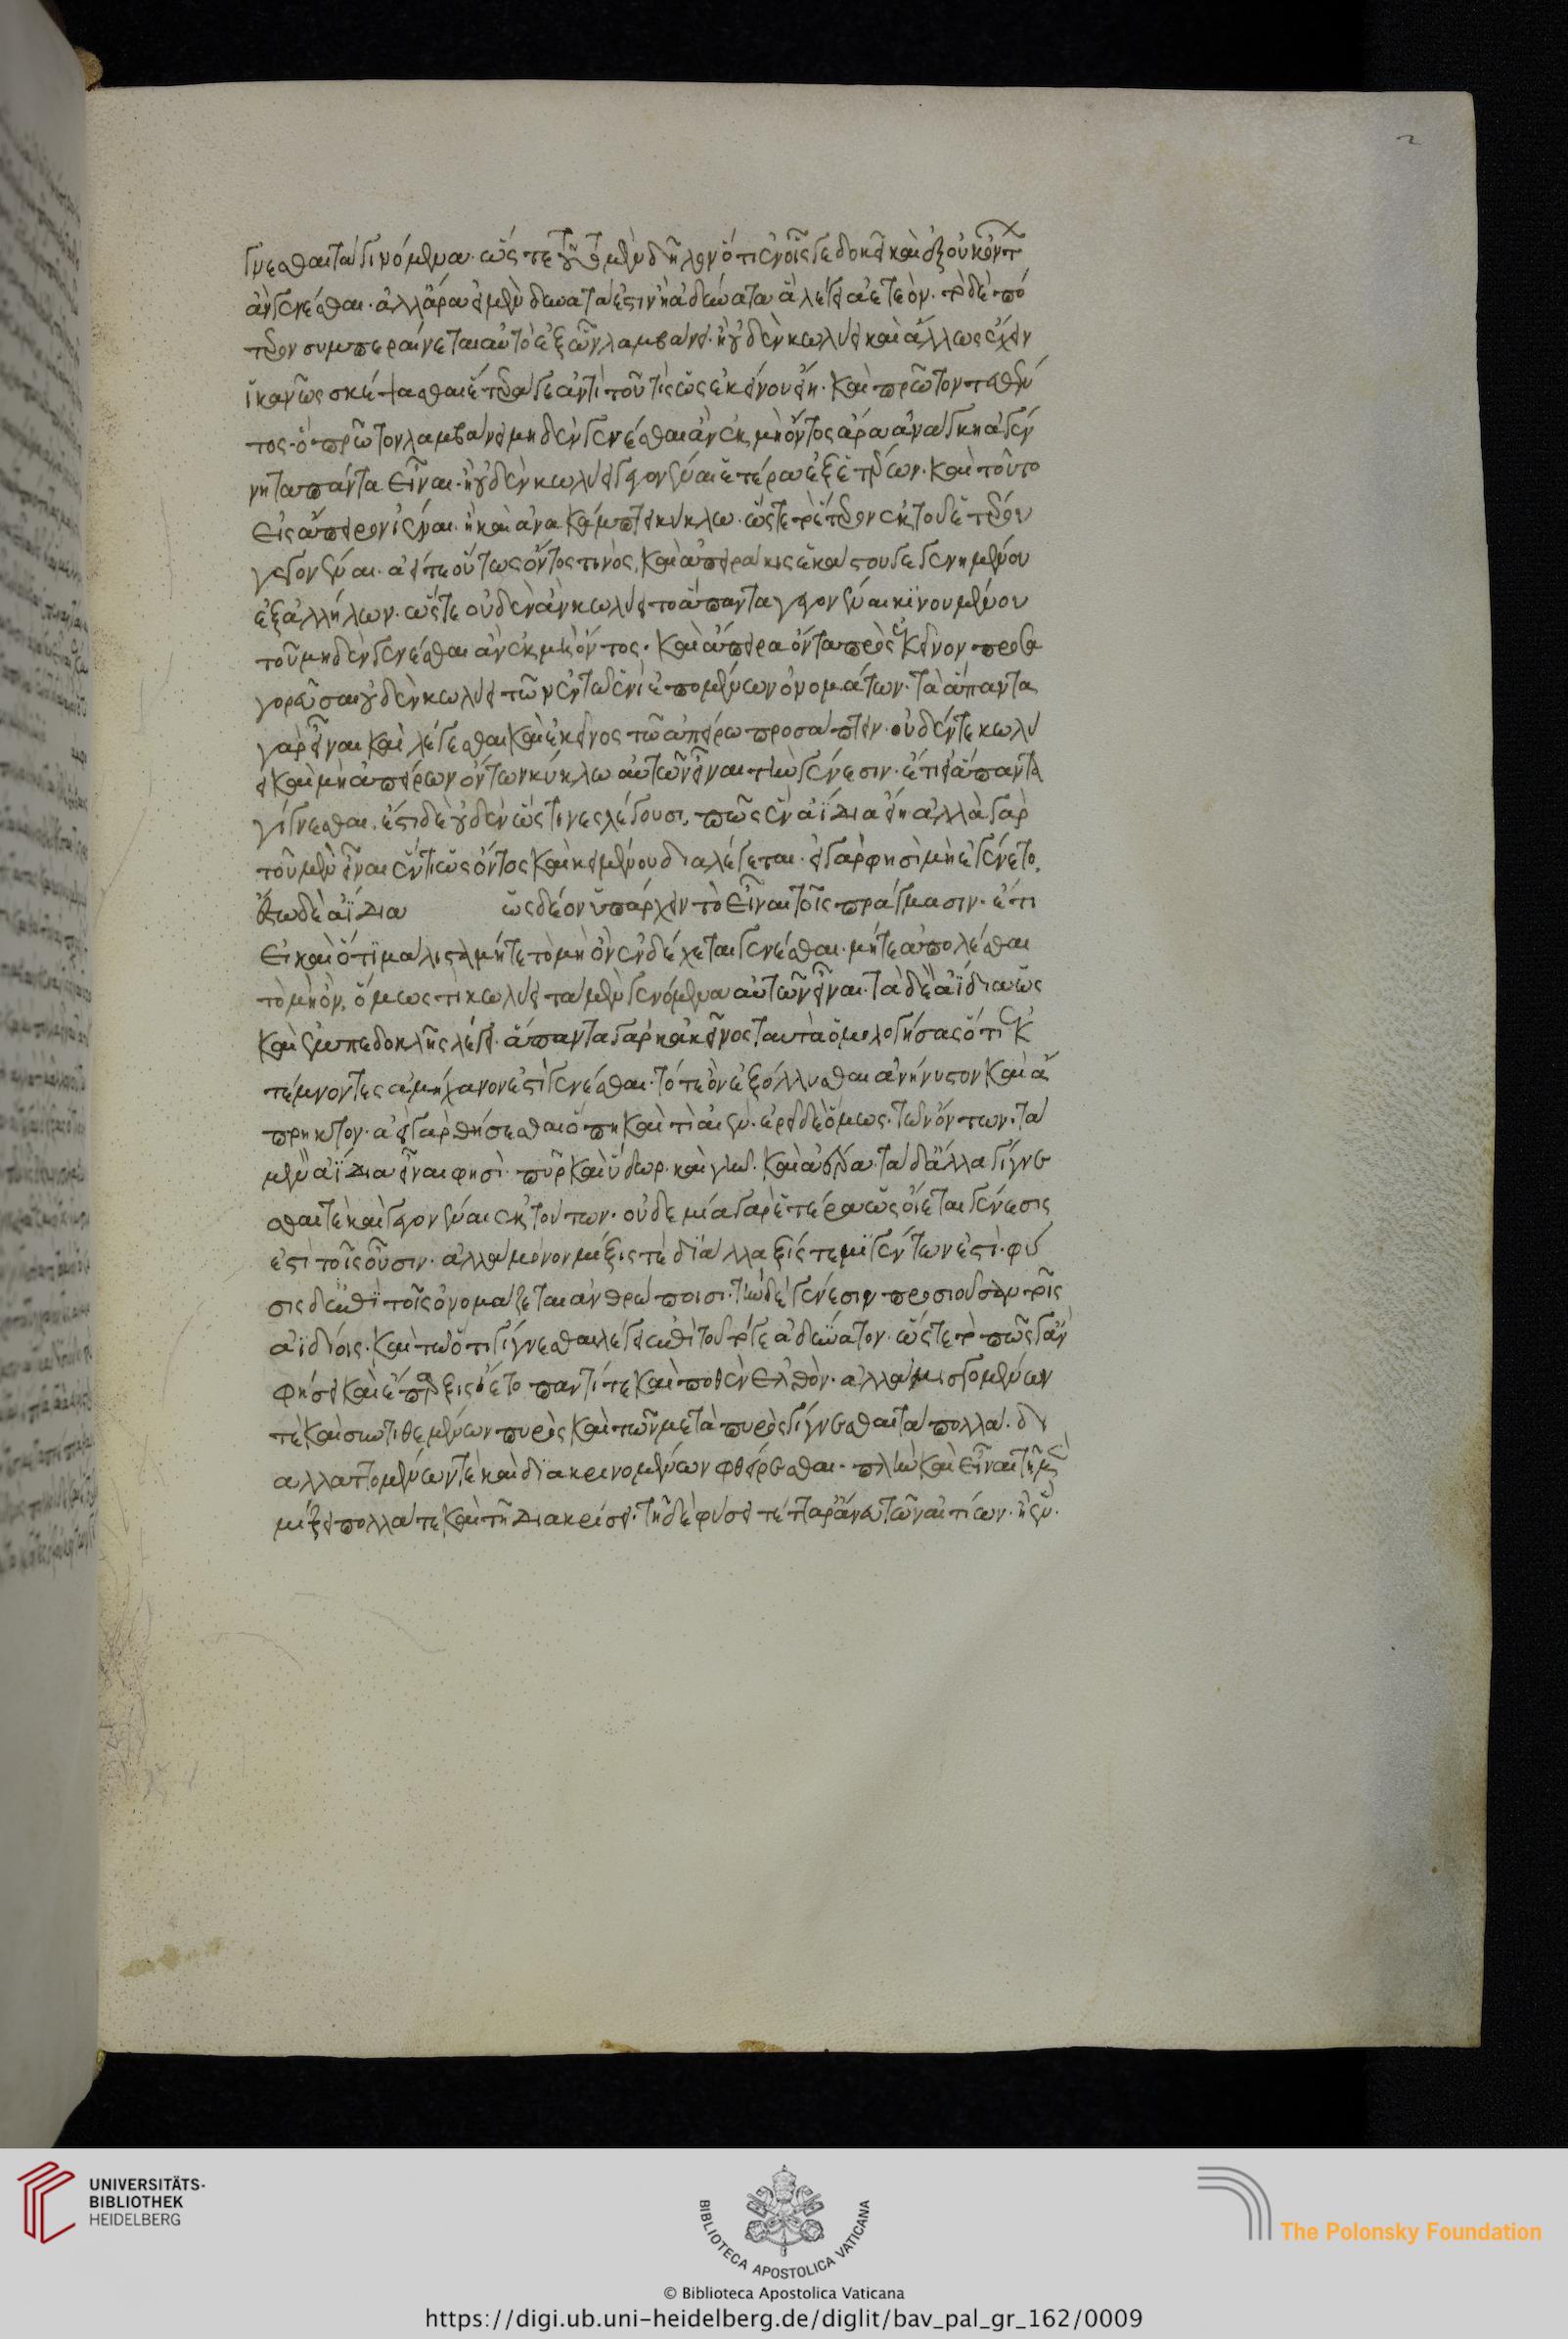 γνεσθαι τὰ γινόμενα. ὥστε τοῦτο μὲν δῆλον ὅτι ἐνοῖς γε δοκεῖ καὶ ἐξ οὐκ ὄντων
ἂν γενέσθαι. ἀλλ' ἆρα εἰ μὲν δυνατά ἐστιν ἢ ἀδύνατα ἃ λέγει ἀετεὸν. τὸ δὲ πό
τερον συμπεραίνεται αὐτὸ ἐξ ὧν λαμβάνει. ἢ οὐδὲν κωλύει καὶ ἄλλως ἔχειν
ἱκανῶς σκέψασθαι ἕτερα γε ἀντὶ τοῦ τις ὡς ἐκείνου εἴη. καὶ πρῶτον τεθέν
τος. ὃ πρῶτον λαμβάνει μηδὲν γενέσθαι ἂν ἐκ μὴ ὄντος ἆρα ἀνάγκη ἀγέν
νητα πάντα εἶναι. ἢ οὐδὲν κωλύει γεγονέναι ἕτερα ἐξ ἑτέρων. καὶ τοῦτο
εἰς ἄπειρον ἰέναι. ἢ καὶ ἀνακάμπτει κύκλω. ὥστε τὸ ἕτερον ἐκ τοῦ ἑτέρου
γεγονέναι. ἀεί τε οὕτως ὄντος τινὸς, καὶ ἀπειράκις ἑκάστου γεγενημένου
ἐξ ἀλλήλων. ὥστε οὐδὲν ἂν κωλύει τὸ ἅπαντα γεγονέναι κϊνουμένου
τοῦ μηδὲν γενέσθαι ἂν ἐκ μὴ ὄντος. καὶ ἄπειρα ὄντα πρὸς ἐκεῖνον προσα
γορεῦσαι οὐδὲν κωλύει τῶν ἐν τῶ ἑνὶ ἑπομένων ὀνομάτων. τὰ ἅπαντα
γὰρ εἶναι καὶ λέγεσθαι καὶ ἐκεῖνος τῶ ἀπείρω προσάπτειν. οὐδέν τε κωλύ
ει καὶ μὴ ἀπείρων ὄντων κύκλω αὐτῶν εἶναι τὴν γένεσιν. ἔτι εἰ ἅπαντα
γίγνεσθαι. ἔστι δὲ οὐδὲν ὥς τινες λέγουσι, πῶς ἓν ἀΐδια εἴη ἀλλὰ γὰρ
τοῦ μὲν εἶναι ἔν τι ὡς ὄντος καὶ κειμένου διαλέγεται. εἰ γάρ φησὶ μὴ ἐγένετο,
ἔστω δὲ ἀΐδια ὡς δέον ὑπάρχειν τὸ εἶναι τοῖς πράγμασιν. ἔτι
εἰ καὶ ὅτϊ μάλιστα μήτε τὸ μὴ ὂν ἐνδέχεται γενέσθαι. μήτε ἀπολέσθαι
τὸ μὴ ὄν, ὅμως τί κωλύει τὰ μὲν γενόμενα αὐτῶν εἶναι. τὰ δὲ ἀΐδια ὡς
καὶ ἐμπεδοκλῆς λέγει. ἅπαντα γὰρ κἀκεῖνος ταυτὰ ὁμολογήσας ὅτι ἐκ
τέμνοντες ἀμήχανον ἐστὶ γενέσθαι. τό τε ὂν ἐξόλλυσθαι ἀνήνυστον καὶ ἄ
πρηκτον. ἀεὶ γὰρ θήσεσθαι ὅπη καὶ τὶ αἰὲν. ἐρεῖ δὲ ὅμως. τῶν ὄντων. τὰ
μὲν ἀΐδια εἶναι φησὶ. πῦρ καὶ ὕδωρ. καὶ γῆν. καὶ ἀέρα. τὰ δ' ἄλλα γίγνε
σθαι τὲ καὶ γεγονέναι ἐκ τούτων. οὐδεμία γὰρ ἑτέρα ὡς οἴεται γένεσις
ἐστὶ τοῖς οὖσιν. ἀλλὰ μόνον μῖξις τὲ δϊάλλαξίς τε μϊγέντων ἐστὶ. φύ
σις δ' ἐπὶ τοῖς ὀνομάζεται ἀνθρώποισι. τὴν δὲ γένεσιν πρὸς οὐσίαν τοῖς
ἀϊδίοις. καὶ τῶ ὅτι γίγνεσθαι λέγει ἐπὶ τοῦ τό γε ἀδύνατον. ὥς τε τὸ πῶς γὰρ
φήσει καὶ ἔπρηξις ὤετο παντί τε καὶ ποθὲν ἐλθὸν. ἀλλὰ μισγομένων
τὲ καὶ συντιθεμένων πυρὸς καὶ τῶν μετὰ πυρὸς γίγνεσθαι τὰ πολλὰ. δι
αλλαττομένων τὲ καὶ δϊακρινομένων φθείρεσθαι. πλὴν καὶ εἶναι τῆ μὲν
μίξει πολλά τε καὶ τῆ διακρίσει. τῆ δὲ φύσει τέτταρ' ἄνευ τῶν αἰτίων. ἢ ἕν.
2
UNIVERSITÄTS-
BIBLIOTHEK
HEIDELBERG
BIBLIOTECA APOSTOLICA VATICANA
The Polonsky Foundation
© Biblioteca Apostolica Vaticana
https://digi.ub.uni-heidelberg.de/diglit/bav_pal_gr_162/0009